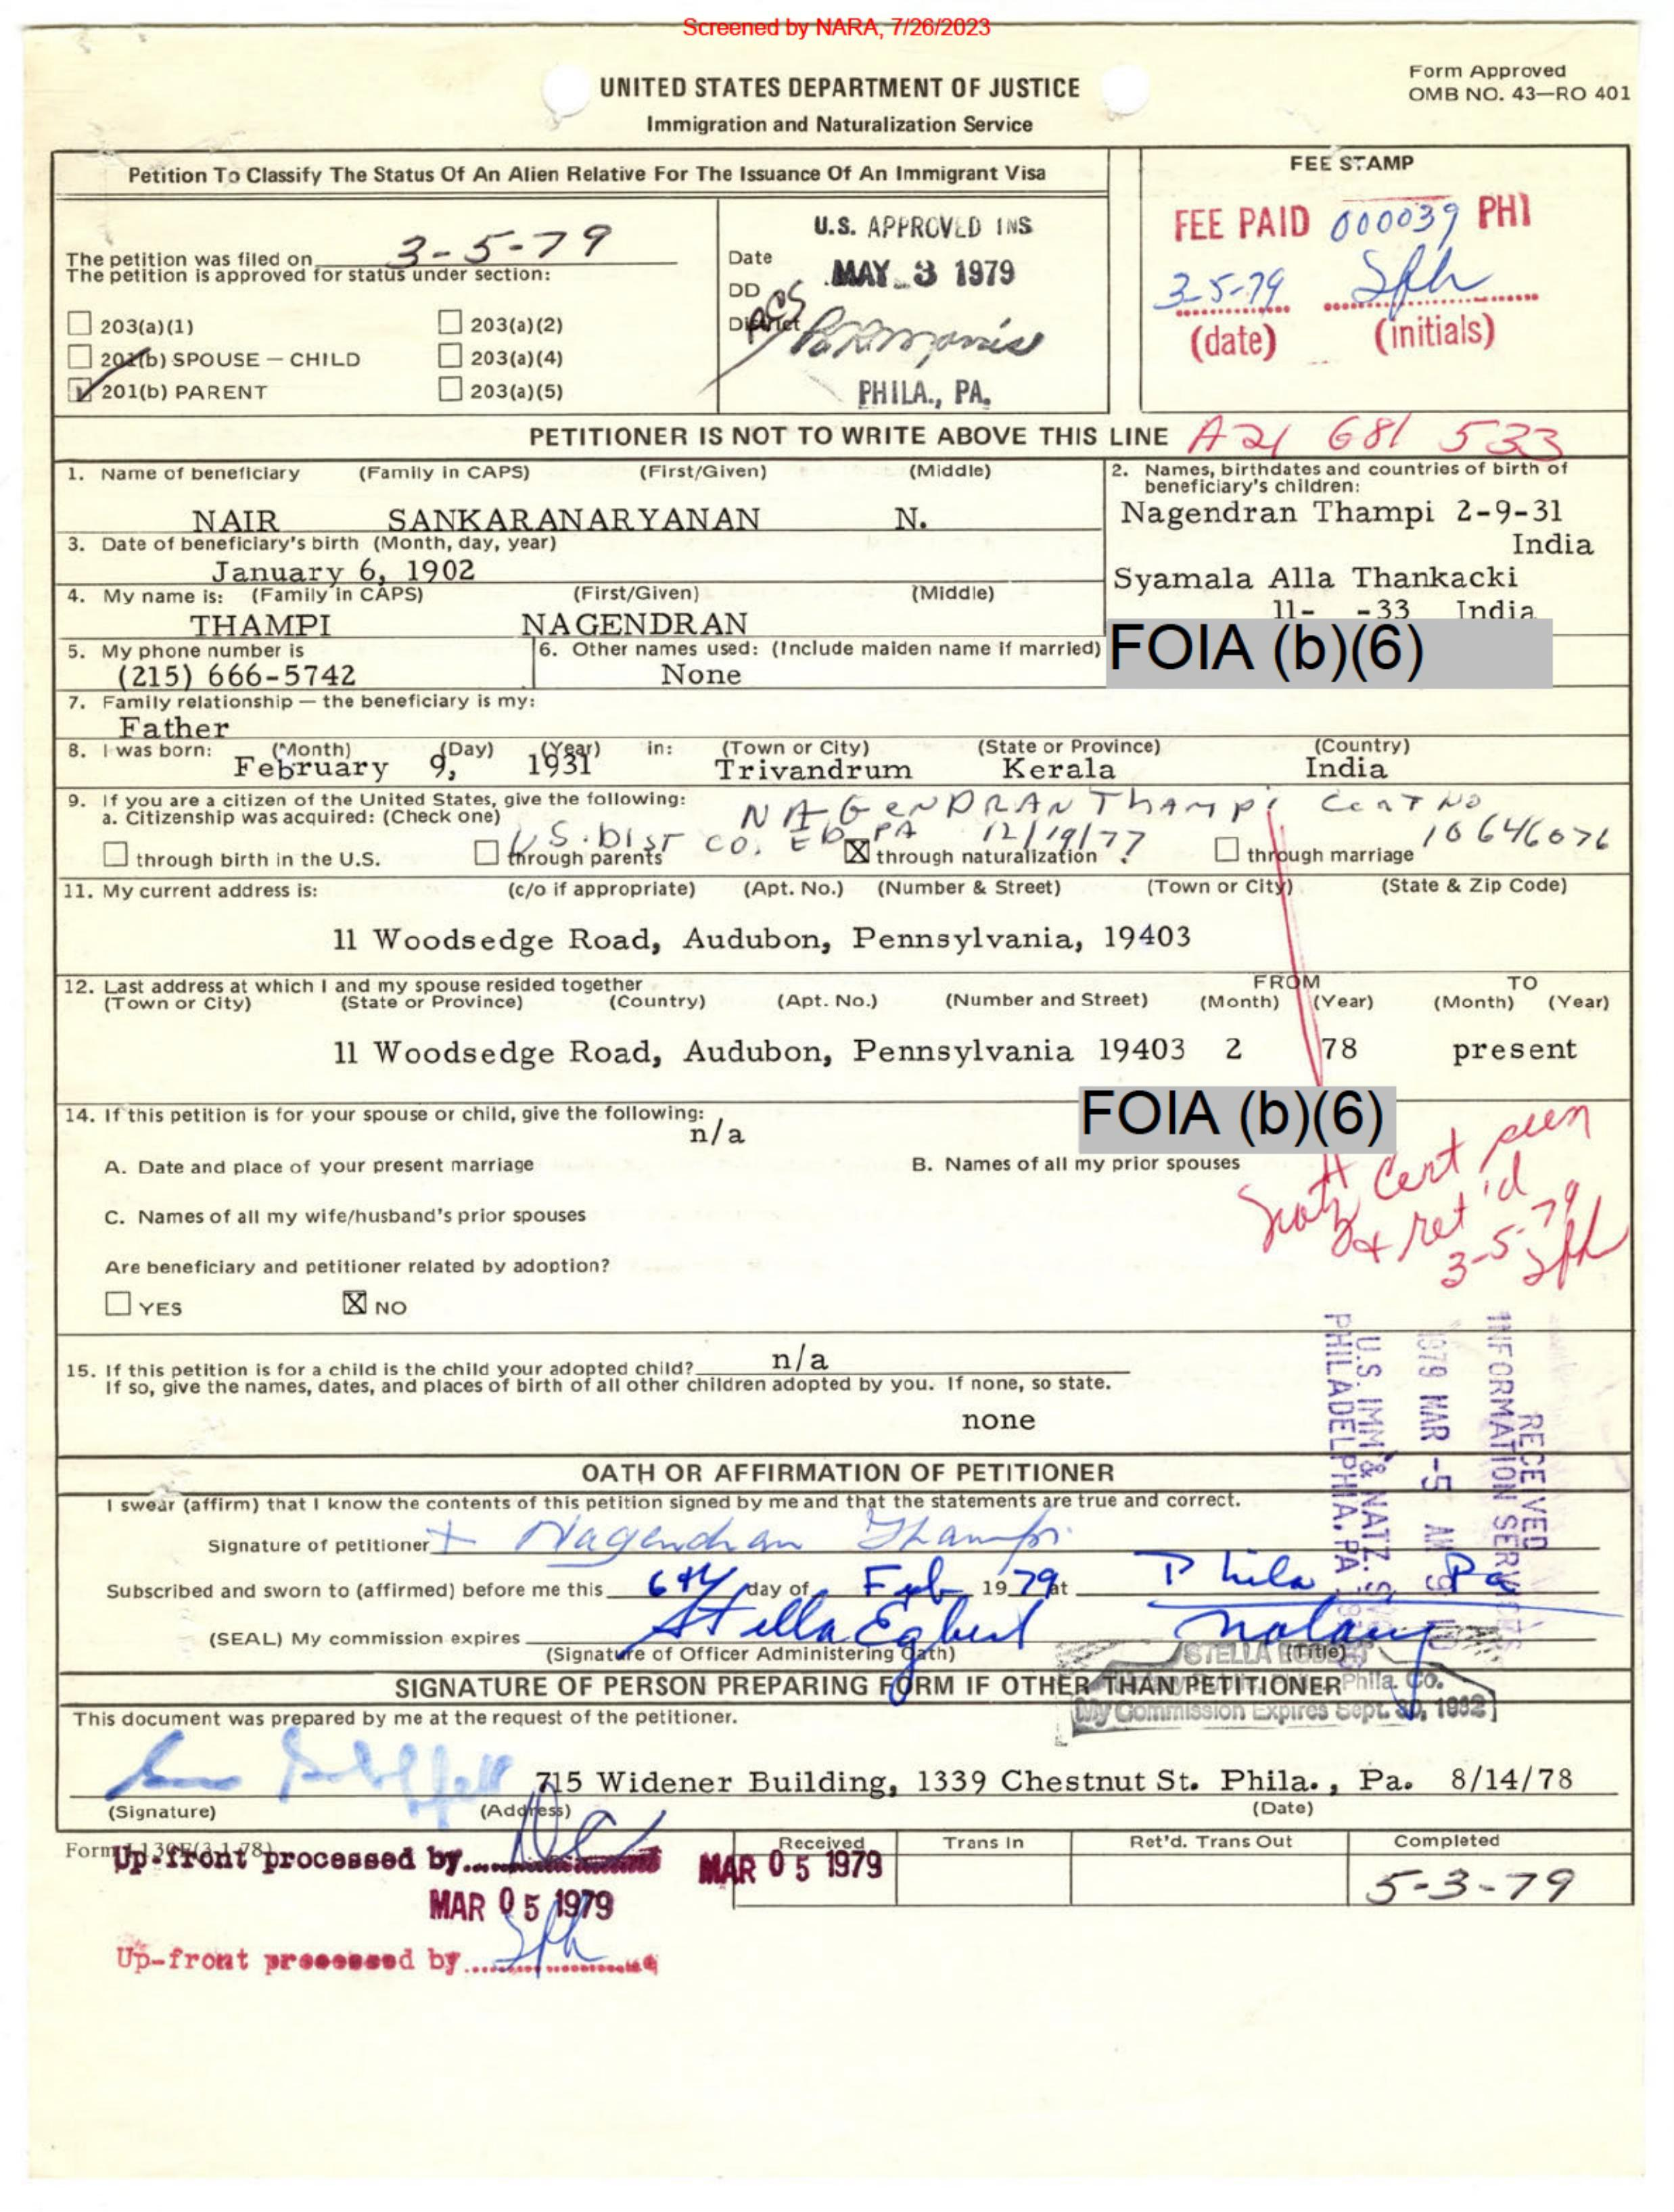 Screened by NARA, 7/26/2023
UNITED STATES DEPARTMENT OF JUSTICE
Immigration and Naturalization Service
Form Approved
OMB NO. 43—RO 401
Petition To Classify The Status Of An Alien Relative For The Issuance Of An Immigrant Visa
FEE STAMP
FEE PAID 000039 PHI
3-5-79 Sph
(date) (initials)
The petition was filed on 3-5-79
The petition is approved for status under section:
203(a)(1) 203(a)(2)
201(b) SPOUSE — CHILD 203(a)(4)
201(b) PARENT 203(a)(5)
U.S. APPROVED INS
Date MAY 3 1979
DD
District
PHILA., PA.
PETITIONER IS NOT TO WRITE ABOVE THIS LINE A21 681 533
1. Name of beneficiary (Family in CAPS) (First/Given) (Middle)
NAIR SANKARANARYANAN N.
2. Names, birthdates and countries of birth of
beneficiary's children:
Nagendran Thampi 2-9-31
India
Syamala Alla Thankacki
11- -33 India
FOIA (b)(6)
3. Date of beneficiary's birth (Month, day, year)
January 6, 1902
4. My name is: (Family in CAPS) (First/Given) (Middle)
THAMPI NAGENDRAN
5. My phone number is
(215) 666-5742
6. Other names used: (Include maiden name if married)
None
7. Family relationship — the beneficiary is my:
Father
8. I was born: (Month) (Day) (Year) in: (Town or City) (State or Province) (Country)
February 9, 1931 Trivandrum Kerala India
9. If you are a citizen of the United States, give the following:
a. Citizenship was acquired: (Check one)
NAGENDRAN Thampi Cert No
U.S. Dist Co. ED PA 12/19/77 10646076
through birth in the U.S. through parents through naturalization through marriage
11. My current address is: (c/o if appropriate) (Apt. No.) (Number & Street) (Town or City) (State & Zip Code)
11 Woodsedge Road, Audubon, Pennsylvania, 19403
12. Last address at which I and my spouse resided together FROM TO
(Town or City) (State or Province) (Country) (Apt. No.) (Number and Street) (Month) (Year) (Month) (Year)
11 Woodsedge Road, Audubon, Pennsylvania 19403 2 78 present
FOIA (b)(6)
14. If this petition is for your spouse or child, give the following:
n/a
A. Date and place of your present marriage B. Names of all my prior spouses
C. Names of all my wife/husband's prior spouses
Natz Cert seen
& ret'd
3-5-79
Sph
Are beneficiary and petitioner related by adoption?
YES NO
15. If this petition is for a child is the child your adopted child? n/a
If so, give the names, dates, and places of birth of all other children adopted by you. If none, so state.
none
RECEIVED
INFORMATION SERVICES
1979 MAR -5 AM 9
U.S. IMM & NATZ. S
PHILADELPHIA, PA
OATH OR AFFIRMATION OF PETITIONER
I swear (affirm) that I know the contents of this petition signed by me and that the statements are true and correct.
Signature of petitioner Nagendran Thampi
Subscribed and sworn to (affirmed) before me this 6th day of Feb 1979 at Phila Pa
(SEAL) My commission expires Stella Egbert Notary
(Signature of Officer Administering Oath) (Title)
STELLA EGBERT
Phila. Co.
My Commission Expires Sept. 20, 1982
SIGNATURE OF PERSON PREPARING FORM IF OTHER THAN PETITIONER
This document was prepared by me at the request of the petitioner.
715 Widener Building, 1339 Chestnut St. Phila., Pa. 8/14/78
(Signature) (Address) (Date)
Form I-130E(3-1-78)
Received Trans In Ret'd. Trans Out Completed
MAR 05 1979 5-3-79
Up-front processed by
MAR 05 1979
Up-front processed by Sph